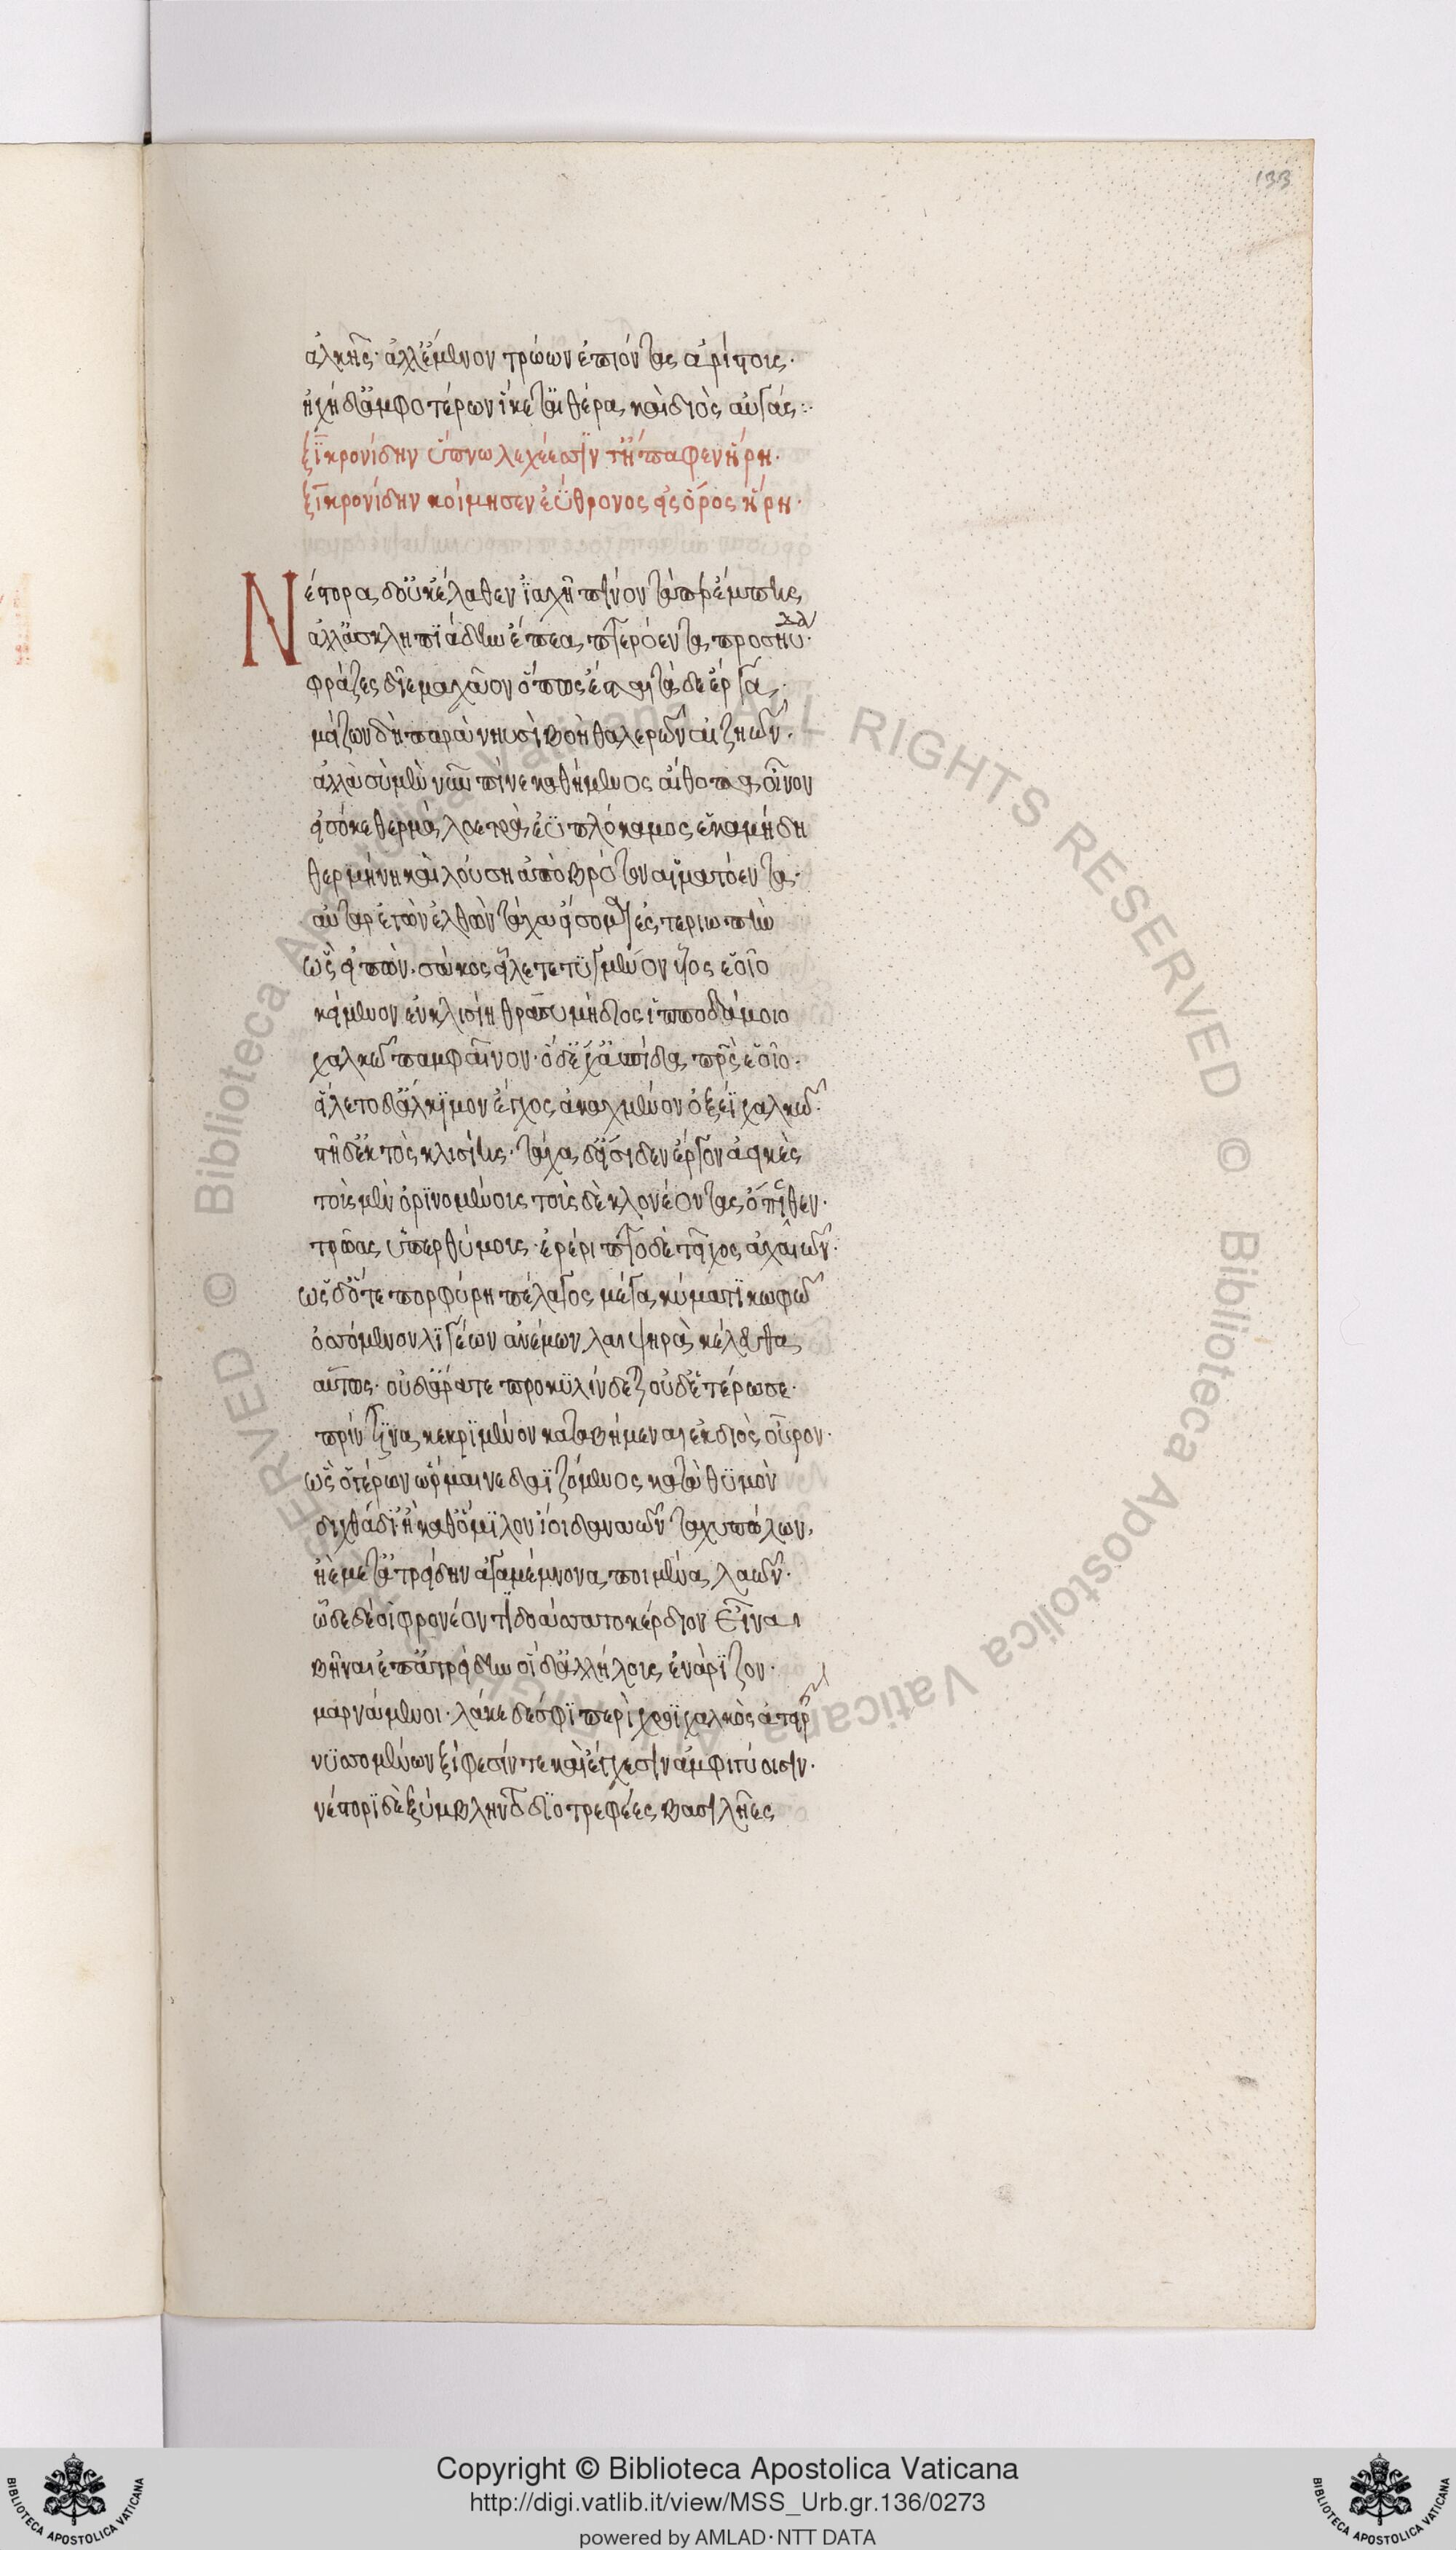 133
ἀλκῆς· ἀλλ' ἔμενον τρώων ἐπιόντας ἀρίστοις·
ἠχὴ δ' ἀμφοτέρων ἵκετ' αἰθέρα καὶ διὸς αὐγάς:·
ξῖ κρονίδην ὕπνω λεχέεσσιν τῆ πάφεν ἥρη·
ξῖ κρονίδην κοίμησεν ἐΰθρονος εἰς ὄρος ἥρη·
Νέστορα δ' οὐκ ἔλαθεν ἰαχὴ πίνοντά περ ἔμπης
ἀλλ' ἀσκληπιάδην ἔπεα πτερόεντα προσηύδα·
φράζεο δῖε μαχᾶον ὅπως ἔσται τάδε ἔργα·
μάζων δὴ παρὰ νηυσὶ βοὴ θαλερῶν αἰζηῶν·
ἀλλὰ σὺ μὲν νῦν πῖνε καθήμενος αἴθοπα οἶνον
εἰσόκε θερμὰ λοετρὰ ἐϋπλόκαμος ἑκαμήδη
θερμήνη καὶ λούση ἀπὸ βρότον αἱματόεντα·
αὐτὰρ ἐγὼν ἐλθὼν τάχα εἴσομαι ἐς περιωπὴν
ὣς εἰπὼν. σάκος εἷλε τετυγμένον υἷος ἑοῖο
κείμενον ἐν κλισίη θρασυμήδεος ἱπποδάμοιο
χαλκῶ παμφαῖνον· ὁ δ' ἔχ' ἀσπίδα πατρὸς ἑοῖο·
εἵλετο δ' ἄλκιμον ἔγχος ἀκαχμένον ὀξέϊ χαλκῶ·
στῆ δ' ἐκτὸς κλισίης· τάχα δ' εἴσιδεν ἔργον ἀεικὲς
τοὺς μὲν ὀρινομένους τοὺς δὲ κλονέοντας ὄπισθεν·
τρῶας ὑπερθύμους· ἐρέριπτο δὲ τεῖχος ἀχαιῶν·
ὡς δ' ὅτε πορφύρη πέλαγος μέγα κύματι κωφῶ
ὀσσόμενον λιγέων ἀνέμων λαιψηρὰ κέλευθα
αὔτως· οὐδ' ἄρα τε προκυλίνδεται οὐδετέρωσε·
πρίν τινα κεκριμένον καταβήμεναι ἐκ διὸς οὖρον·
ὣς ὁ γέρων ὥρμαινε δαϊζόμενος κατὰ θυμὸν
διχθάδι' ἢ μεθ' ὅμιλον ἴοι δαναῶν ταχυπώλων,
ἠὲ μετ' ἀτρείδην ἀγαμέμνονα ποιμένα λαῶν·
ὧδε δέ οἱ φρονέοντι δοάσσατο κέρδιον εἶναι
βῆναι ἐπ' ἀτρείδην οἱ δ' ἀλλήλους ἐνάριζον·
μαρνάμενοι· λάκε δέ σφι περὶ χροῒ χαλκὸς ἀτειρὴς
νυσσομένων ξίφεσίν τε καὶ ἔγχεσιν ἀμφιγύοισιν·
νέστορι δὲ ξύμβληντο διοτρεφέες βασιλῆες
© Biblioteca Apostolica Vaticana ALL RIGHTS RESERVED © Biblioteca Apostolica Vaticana ALL RIGHTS RESERVED
Copyright © Biblioteca Apostolica Vaticana
http://digi.vatlib.it/view/MSS_Urb.gr.136/0273
powered by AMLAD·NTT DATA
BIBLIOTECA APOSTOLICA VATICANA
BIBLIOTECA APOSTOLICA VATICANA